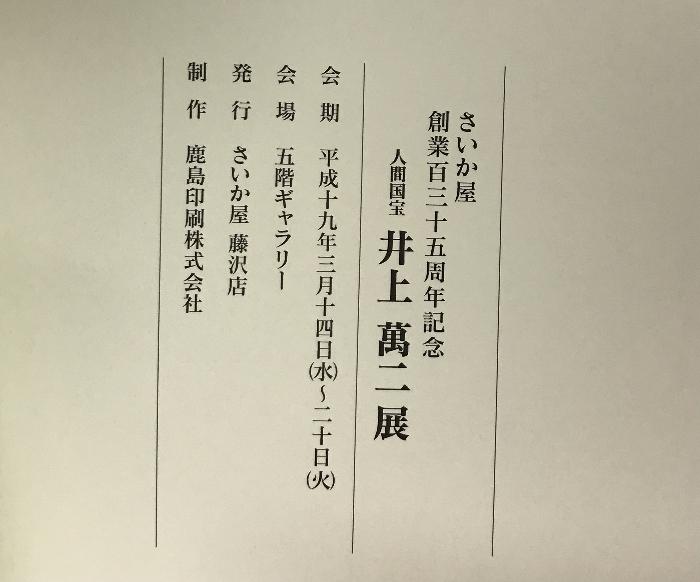 さいか屋
創業百三十五周年記念
人間国宝 井上 萬二 展
会期 平成十九年三月十四日(水)~二十日(火)
会場 五階ギャラリー
発行 さいか屋 藤沢店
制作 鹿島印刷株式会社